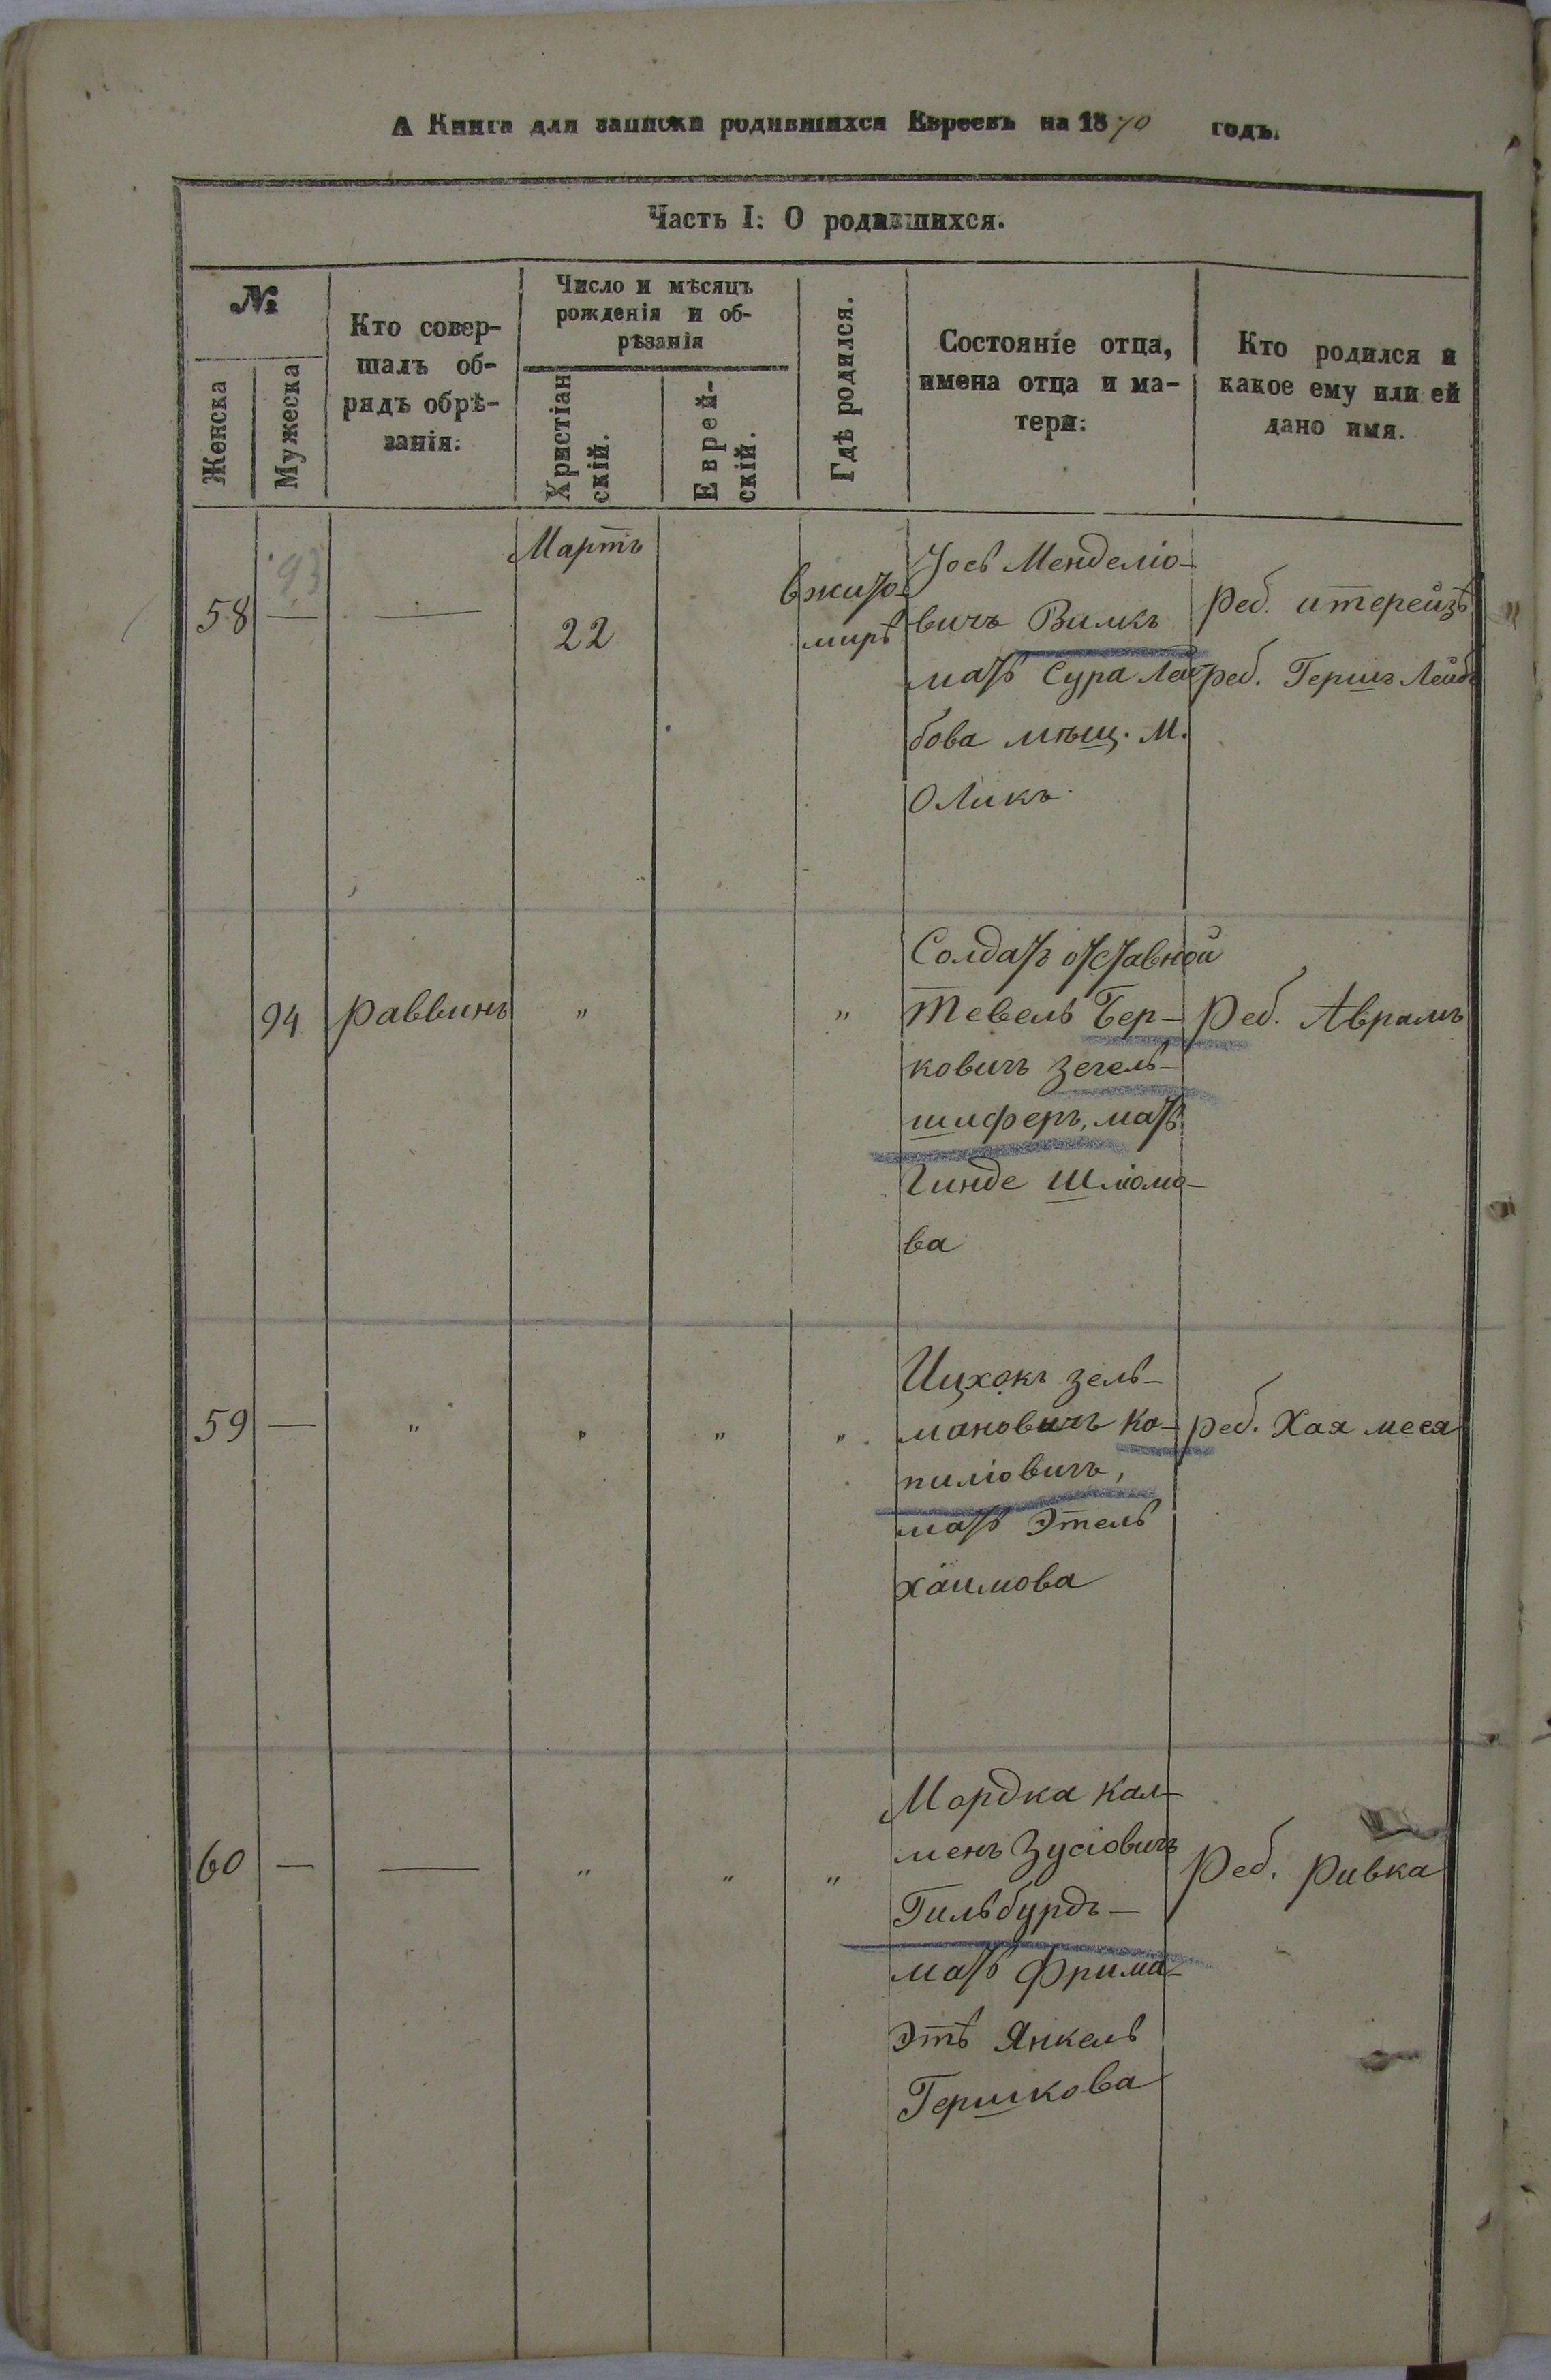 А Книга для записки родившихся Евреевъ на 1870 годъ.
Часть I: О родившихся.
№
Женска
Мужеска
Кто совер-
шалъ об-
рядъ обрѣ-
занія.
Число и мѣсяцъ
рожденія и об-
рѣзанія
Христіан
скій.
Еврей-
скій.
Гдѣ родился.
Состояніе отца,
имена отца и ма-
тери.
Кто родился и
какое ему или ей
дано имя.
58
93
—
—
Мартъ
22
вжито-
мирѣ
Іось Менделіо-
вичъ Вилкъ
мать Сура Лей-
бова мѣщ. М.
Оликъ.
Реб. итерейзѣ
реб. Гершъ Лейбъ
94
раввинъ
"
"
Солдатъ отставной
Тевель Бер-
ковичъ Зегель-
шиферъ, мать
Гинде Шліомо-
ва
Реб. Аврамъ
59
—
"
"
"
"
Ицхокъ Зель-
мановичъ Ко-
пиліовичъ,
мать Этель
хаимова
реб. Хая меся
60
—
—
"
"
"
Мордка Кал-
менъ Зусіовичъ
Гильбурдъ—
мать Фрима-
Этѣ Янкель
Гершкова
Реб. Ривка